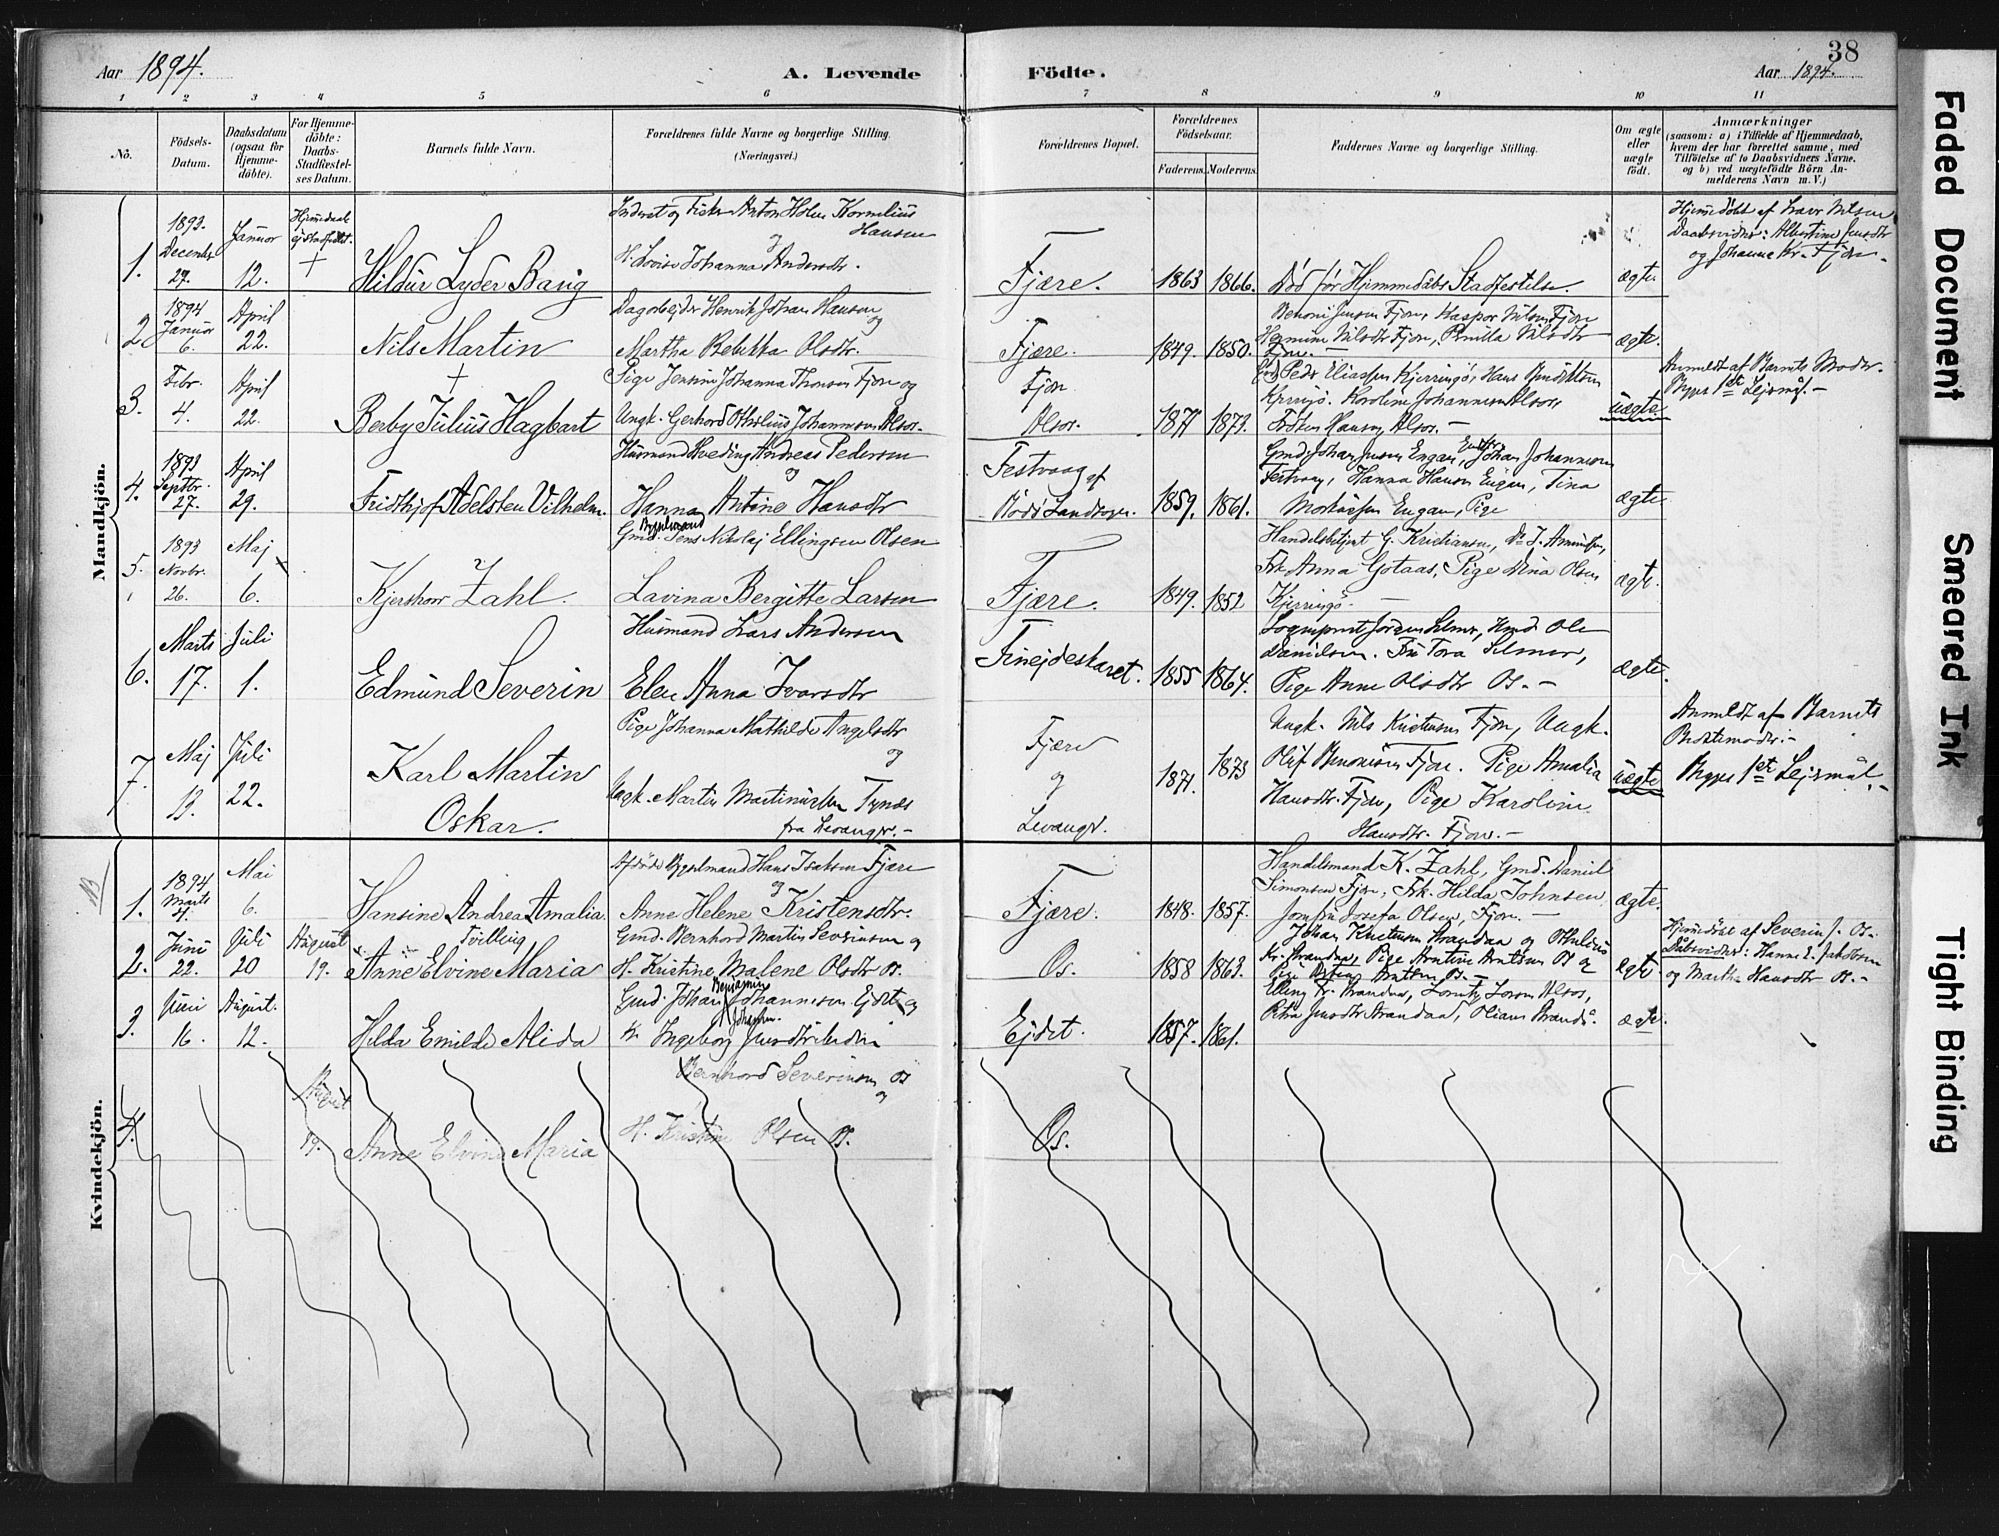 Aar 1894.
A. Levende Födte.
38
Aar 1894.
1 2 3 4 5 6 7 8 9 10 11
No.
Födsels-
Datum.
Daabsdatum
(ogsaa for
Hjemme-
döbte).
For Hjemme-
döbte:
Daabs-
Stadfæstel-
ses Datum.
Barnets fulde Navn.
Forældrenes fulde Navne og borgerlige Stilling.
(Næringsvei.)
Forældrenes Bopæl.
Forældrenes
Födselsaar.
Faderens. Moderens.
Faddernes Navne og borgerlige Stilling.
Om ægte
eller
uægte
födt.
Anmærkninger
(saasom: a) i Tilfælde af Hjemmedaab,
hvem der har forrettet samme, med
Tilföielse af to Daabsvidners Navne,
og b) ved uægtefödte Börn An-
melderens Navn m. V.)
Mandkjön.
1.
1893.
Decembr
29.
Januar
12.
Hjemmedaab
ej stadfæstet.
Hildur Lyder Bang
Inderst og Fisker Anton Holm Kornelius
Hansen
og
H. Lovise Johanna Andersdtr.
Fjære.
1863 1866.
Död för Hjemmedaabs Stadfestelse.
ægte.
Hjemmedöbt af Laur Nilsen
Daabsvidner: Albertine Jensdtr
og Johanne Kr. Fjære.
2.
1894
Januar
6.
April
22.
Nils Martin
Dagarbejder Henrik Johan Hansen
og
Martha Rebekka Olsdtr.
Fjære.
1849. 1850.
Benoni Jensen Fjære, Kaspar Nilsen Fjære
Hermine Nilsdtr Fjære, Pernilla Nilsdtr
Fjære.
ægte.
3.
Febr.
4.
April
22.
Berby Julius Hagbart
Pige Jensine Johanna Thomsen Fjære og
Ungk. Gerhard Othelius Johannesen Alsos.
Fjære
Alsos.
1871 1873.
Gmd. Peder Eliassen Kjerringö, Hans Bendiktsen
Kjerringö. Karoline Johannesen Alsos,
Hansen, Alsos.
uægte
Anmeldt af Barnets Moder.
Begges 1ste Lejrmål.
4.
1893
Septbr.
27.
April
29.
Fridthjof Adelsten Vilhelm.
Husmand Hveding Andreas Pedersen
og
Hanna Antine Hansdtr
Festvaag af
Bodö Landsogn.
1859. 1861.
Gmd. Johan Jensen Engan, Johan Johannesen
Festvaag, Hanna Hansen Engan, Tina
Mortensen Engan, Pige
ægte.
5.
1893
Novbr.
26.
Maj
6.
Kjerskow Zahl.
Bygselmand
Gmd. Jens Nikolaj Ellingsen Olsen
Lavina Bergitte Larsen
Fjære.
1849. 1852
Handelsbetjent G. Kristiansen, Do J. Amundsen,
Frk. Anna Gotaas, Pige Dina Olsen
Kjerringö.
ægte.
6.
Marts
17.
Juli
1.
Edmund Severin
Husmand Lars Andersen
Elen Anna Ivarsdtr
Finejdeskaret.
1855 1864.
Sogneprest Jörgen Selmer, Hmd. Ole
Danielsen. Fru Tora Selmer,
Pige Anne Olsdtr Os.
ægte.
7.
Maj
13.
Juli
22.
Karl Martin
Oskar.
Pige Johanna Mathilde Angelsdtr
og
Ungk. Martin Martinussen Tynæs
fra Levanger.
Fjære
og
Levanger.
1871. 1873
Ungk. Nils Kristensen Fjære, Ungk.
Oluf Benonisen Fjære. Pige Amalia
Hansdtr. Fjære, Pige Karoline
Hansdtr. Fjære.
uægte
Anmeldt af Barnets
Bestemoder.
Begges 1ste Lejrmål.
Kvindekjön.
1.
1894
Marts
Mai
6.
Hansine Andrea Amalia.
Afdöde Bygselmand Hans Isaksen Fjære
og
Anne Helene Kristensdtr.
Fjære.
1848. 1857.
Handelsmand K. Zahl, Gmd. Daniel
Simonsen Fjære, Frk. Hilda Johnsen,
Jomfru Josefa Olsen, Fjære.
ægte.
2.
Juni
22.
Juli
20
August
19.
Tvilling
Anne Elvine Maria
Gmd. Bernhard Martin Severinsen og
H. Kristine Malene Olsdtr Os.
Os.
1858 1863.
Johan Kristensen Strandaa og Othelius
Kr. Strandaa, Pige Arntsen Os og
Pige Arntsen Os.
ægte
Hjemmedöbt af Severin J. Os.
Dåbsvidner: Hanne E. Jakobsen
og Martha Hansdtr Os.
3.
Juni
16.
August.
12.
Hilda Emilde Alida
Benjamin
Gmd. Johan Johannesen Ejdet og
Johansen.
H. Ingeborg Jensdtr
Ejdet.
1857. 1861.
Elling Strandaa, Alsos,
Petra Jensdtr Strandaa, Oliane Strandå.
ægte.
4.
August
19.
Anne Elvine Maria
Bernhard Severinsen Os
og
H. Kristine Olsen Os.
Os.
Faded Document
Smeared Ink
Tight Binding